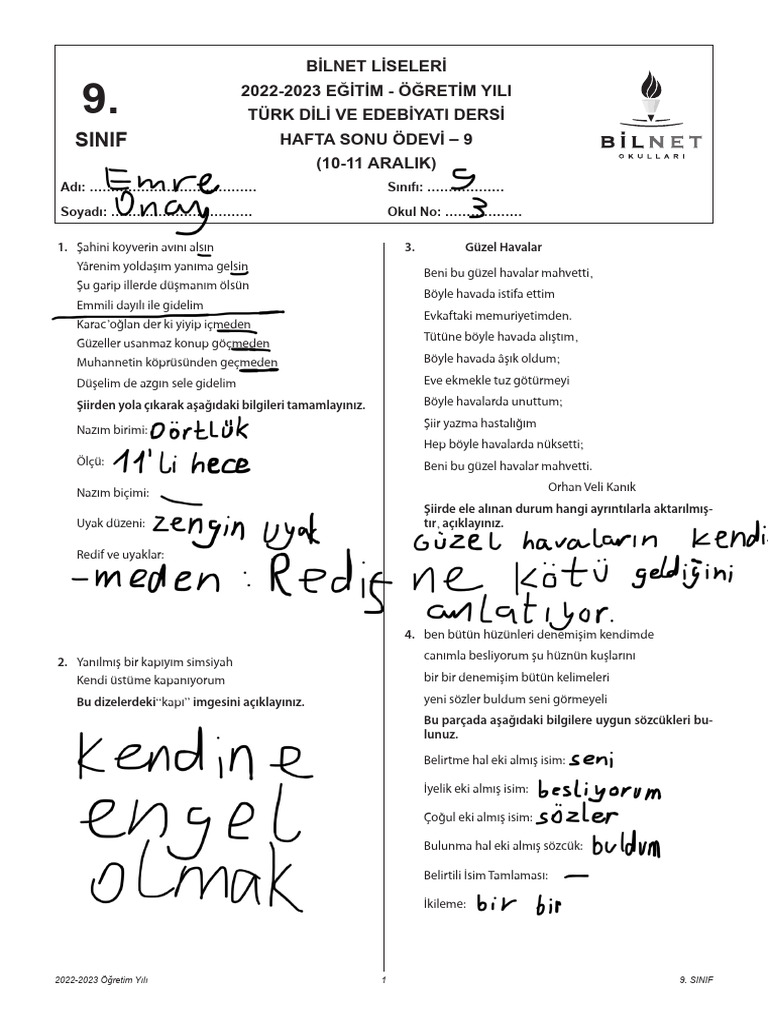 9.
SINIF
BİLNET LİSELERİ
2022-2023 EĞİTİM - ÖĞRETİM YILI
TÜRK DİLİ VE EDEBİYATI DERSİ
HAFTA SONU ÖDEVİ – 9
(10-11 ARALIK)
BİLNET
OKULLARI
Adı: Emre
Sınıfı: 9
Soyadı: Onay
Okul No: 3
1. Şahini koyverin avını alsın
Yârenim yoldaşım yanıma gelsin
Şu garip illerde düşmanım ölsün
Emmili dayılı ile gidelim
Karac'oğlan der ki yiyip içmeden
Güzeller usanmaz konup göçmeden
Muhannetin köprüsünden geçmeden
Düşelim de azgın sele gidelim
Şiirden yola çıkarak aşağıdaki bilgileri tamamlayınız.
Nazım birimi: Dörtlük
Ölçü: 11'li hece
Nazım biçimi: —
Uyak düzeni: zengin uyak
Redif ve uyaklar:
-meden : Redif
2. Yanılmış bir kapıyım simsiyah
Kendi üstüme kapanıyorum
Bu dizelerdeki "kapı" imgesini açıklayınız.
Kendine
engel
olmak
3. Güzel Havalar
Beni bu güzel havalar mahvetti,
Böyle havada istifa ettim
Evkaftaki memuriyetimden.
Tütüne böyle havada alıştım,
Böyle havada âşık oldum;
Eve ekmekle tuz götürmeyi
Böyle havalarda unuttum;
Şiir yazma hastalığım
Hep böyle havalarda nüksetti;
Beni bu güzel havalar mahvetti.
Orhan Veli Kanık
Şiirde ele alınan durum hangi ayrıntılarla aktarılmış-
tır, açıklayınız.
Güzel havaların kendi
ne kötü geldiğini
anlatıyor.
4. ben bütün hüzünleri denemişim kendimde
canımla besliyorum şu hüznün kuşlarını
bir bir denemişim bütün kelimeleri
yeni sözler buldum seni görmeyeli
Bu parçada aşağıdaki bilgilere uygun sözcükleri bu-
lunuz.
Belirtme hal eki almış isim: seni
İyelik eki almış isim: besliyorum
Çoğul eki almış isim: sözler
Bulunma hal eki almış sözcük: buldum
Belirtili İsim Tamlaması: —
İkileme: bir bir
2022-2023 Öğretim Yılı
1
9. SINIF